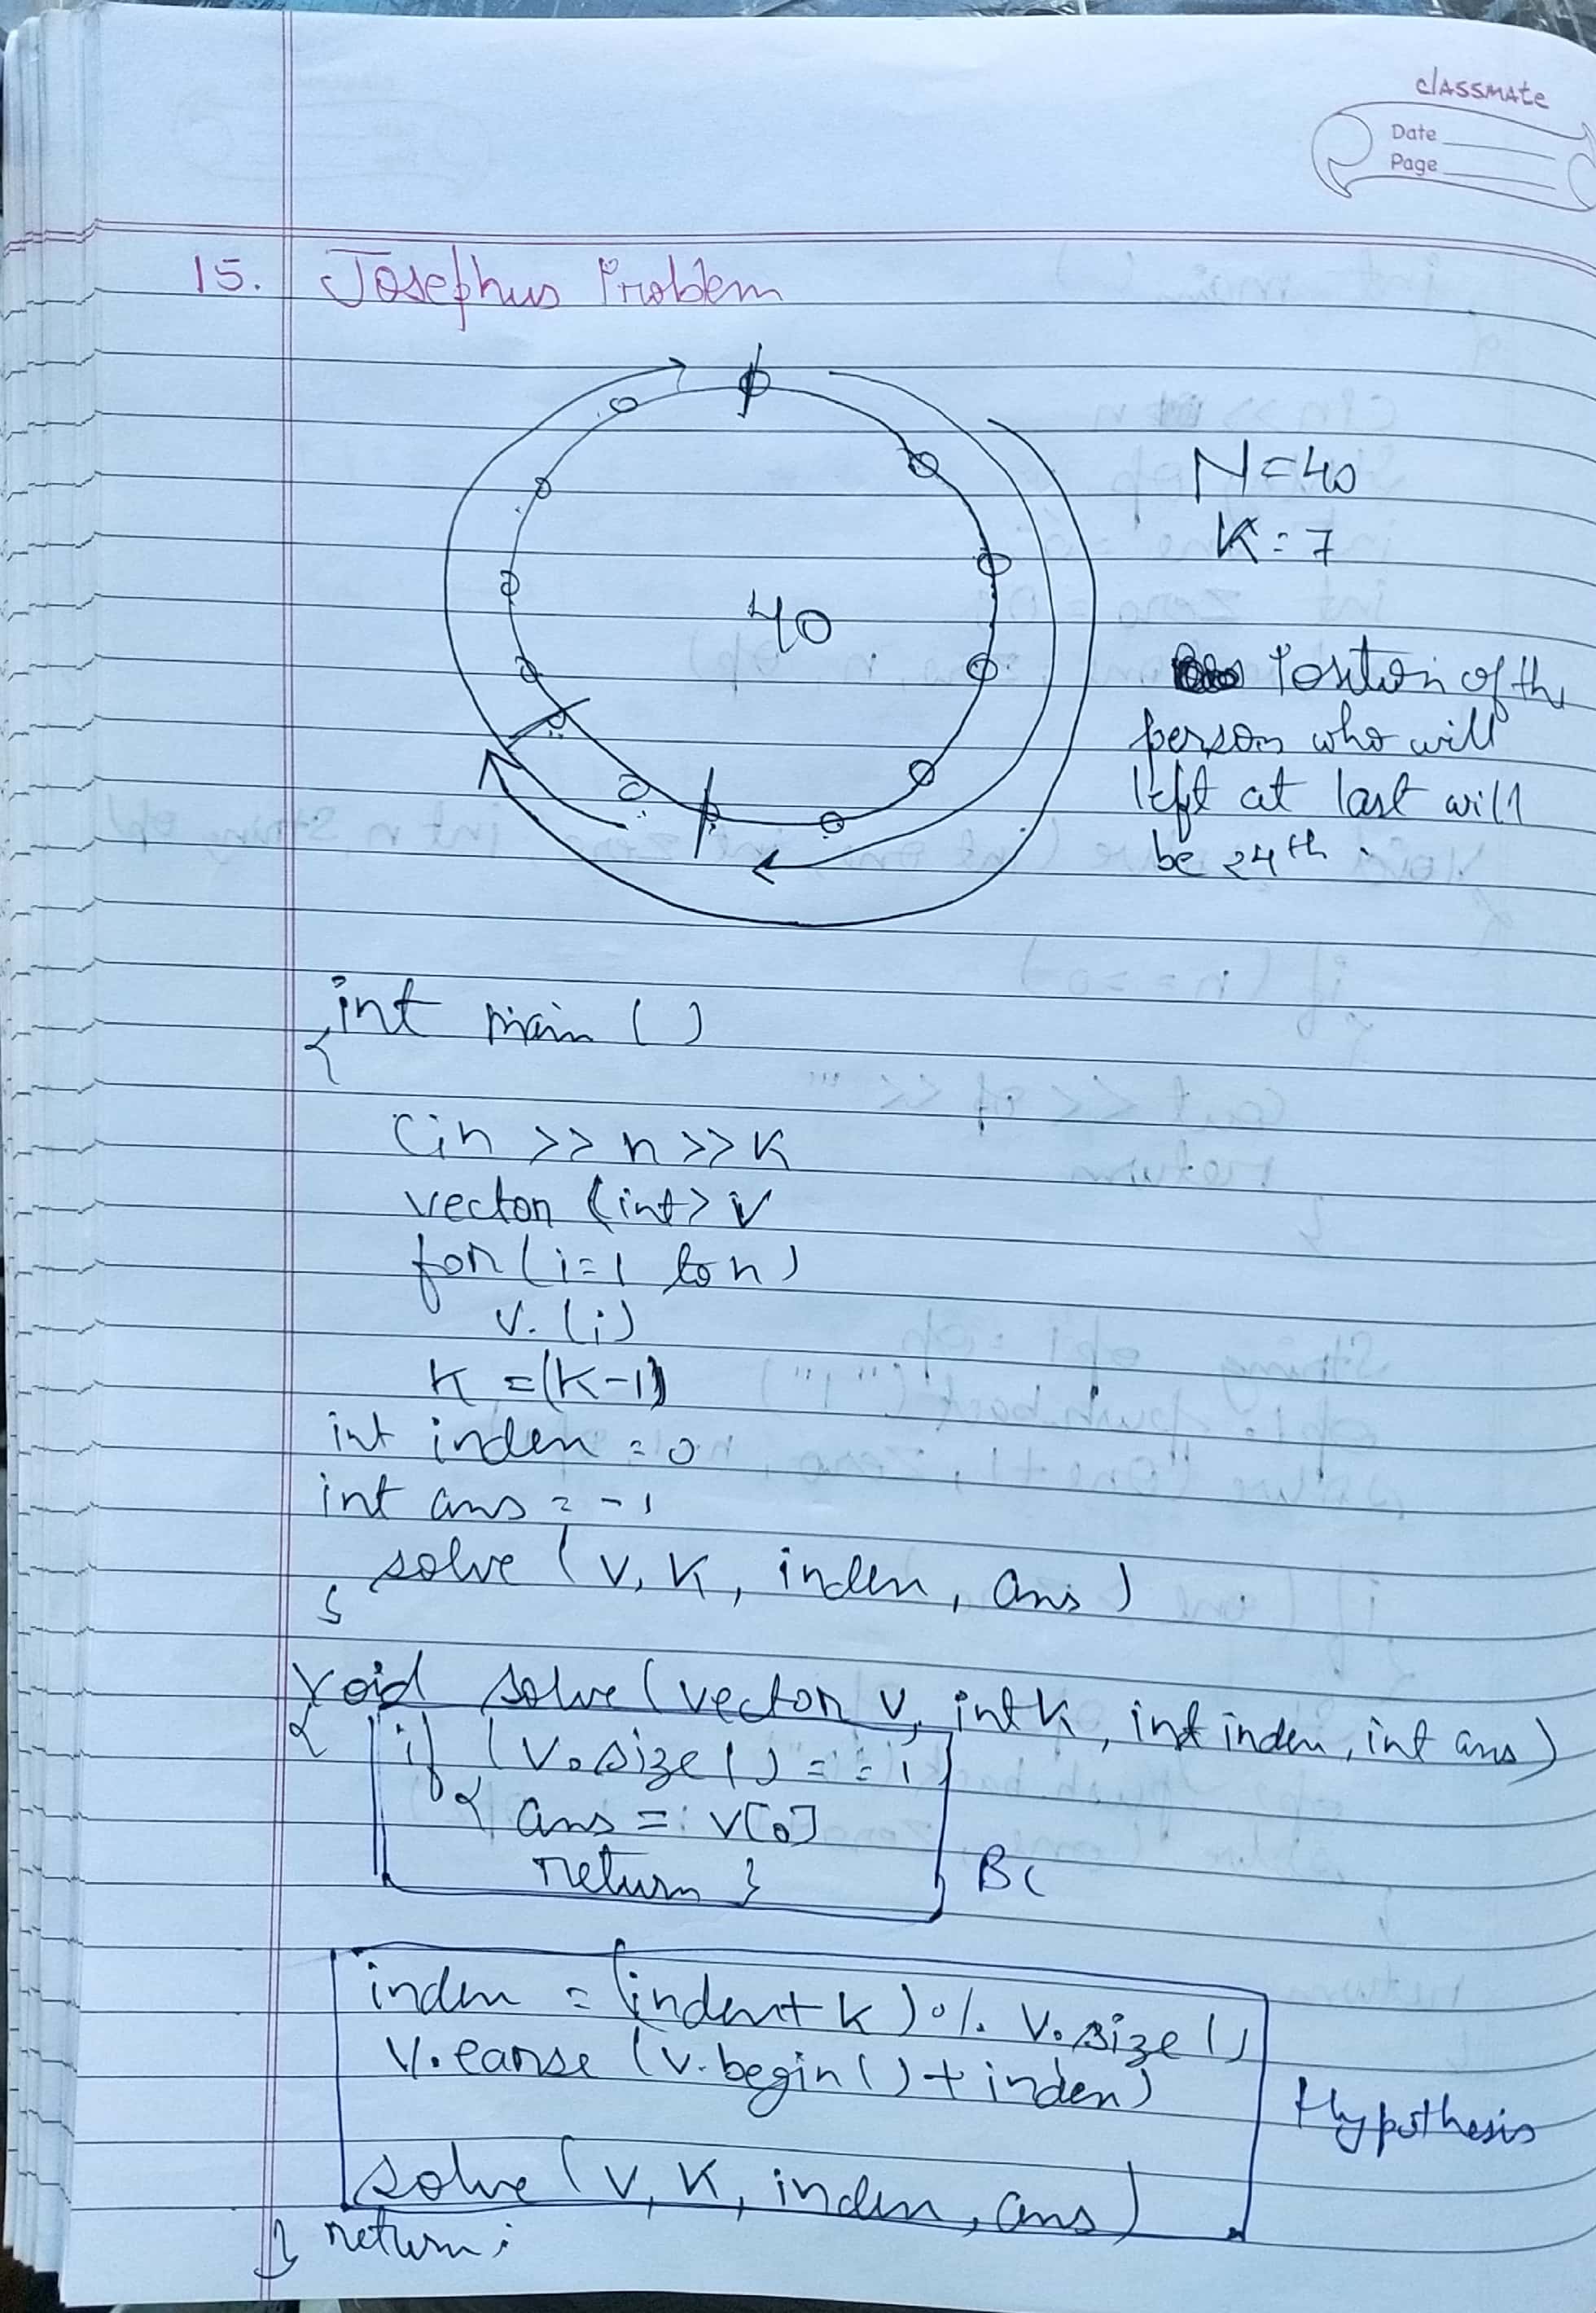 classmate
Date
Page
15. Josephus Problem
N=40
K=7
40
Position of the
person who will
left at last will
be 24th.
int main ()
{
Cin >> n >> K
vector <int> v
for (i=1 to n)
v. (i)
K = (K-1)
int index = 0
int ans = -1
solve (v, K, index, ans)
}
void solve (vector v, int k, int index, int ans)
{ if (v.size() == 1)
{ ans = v[0]
return }
BC
index = (index + k) % v.size()
v.earse (v.begin() + index)
Hypothesis
solve (v, K, index, ans)
} return;